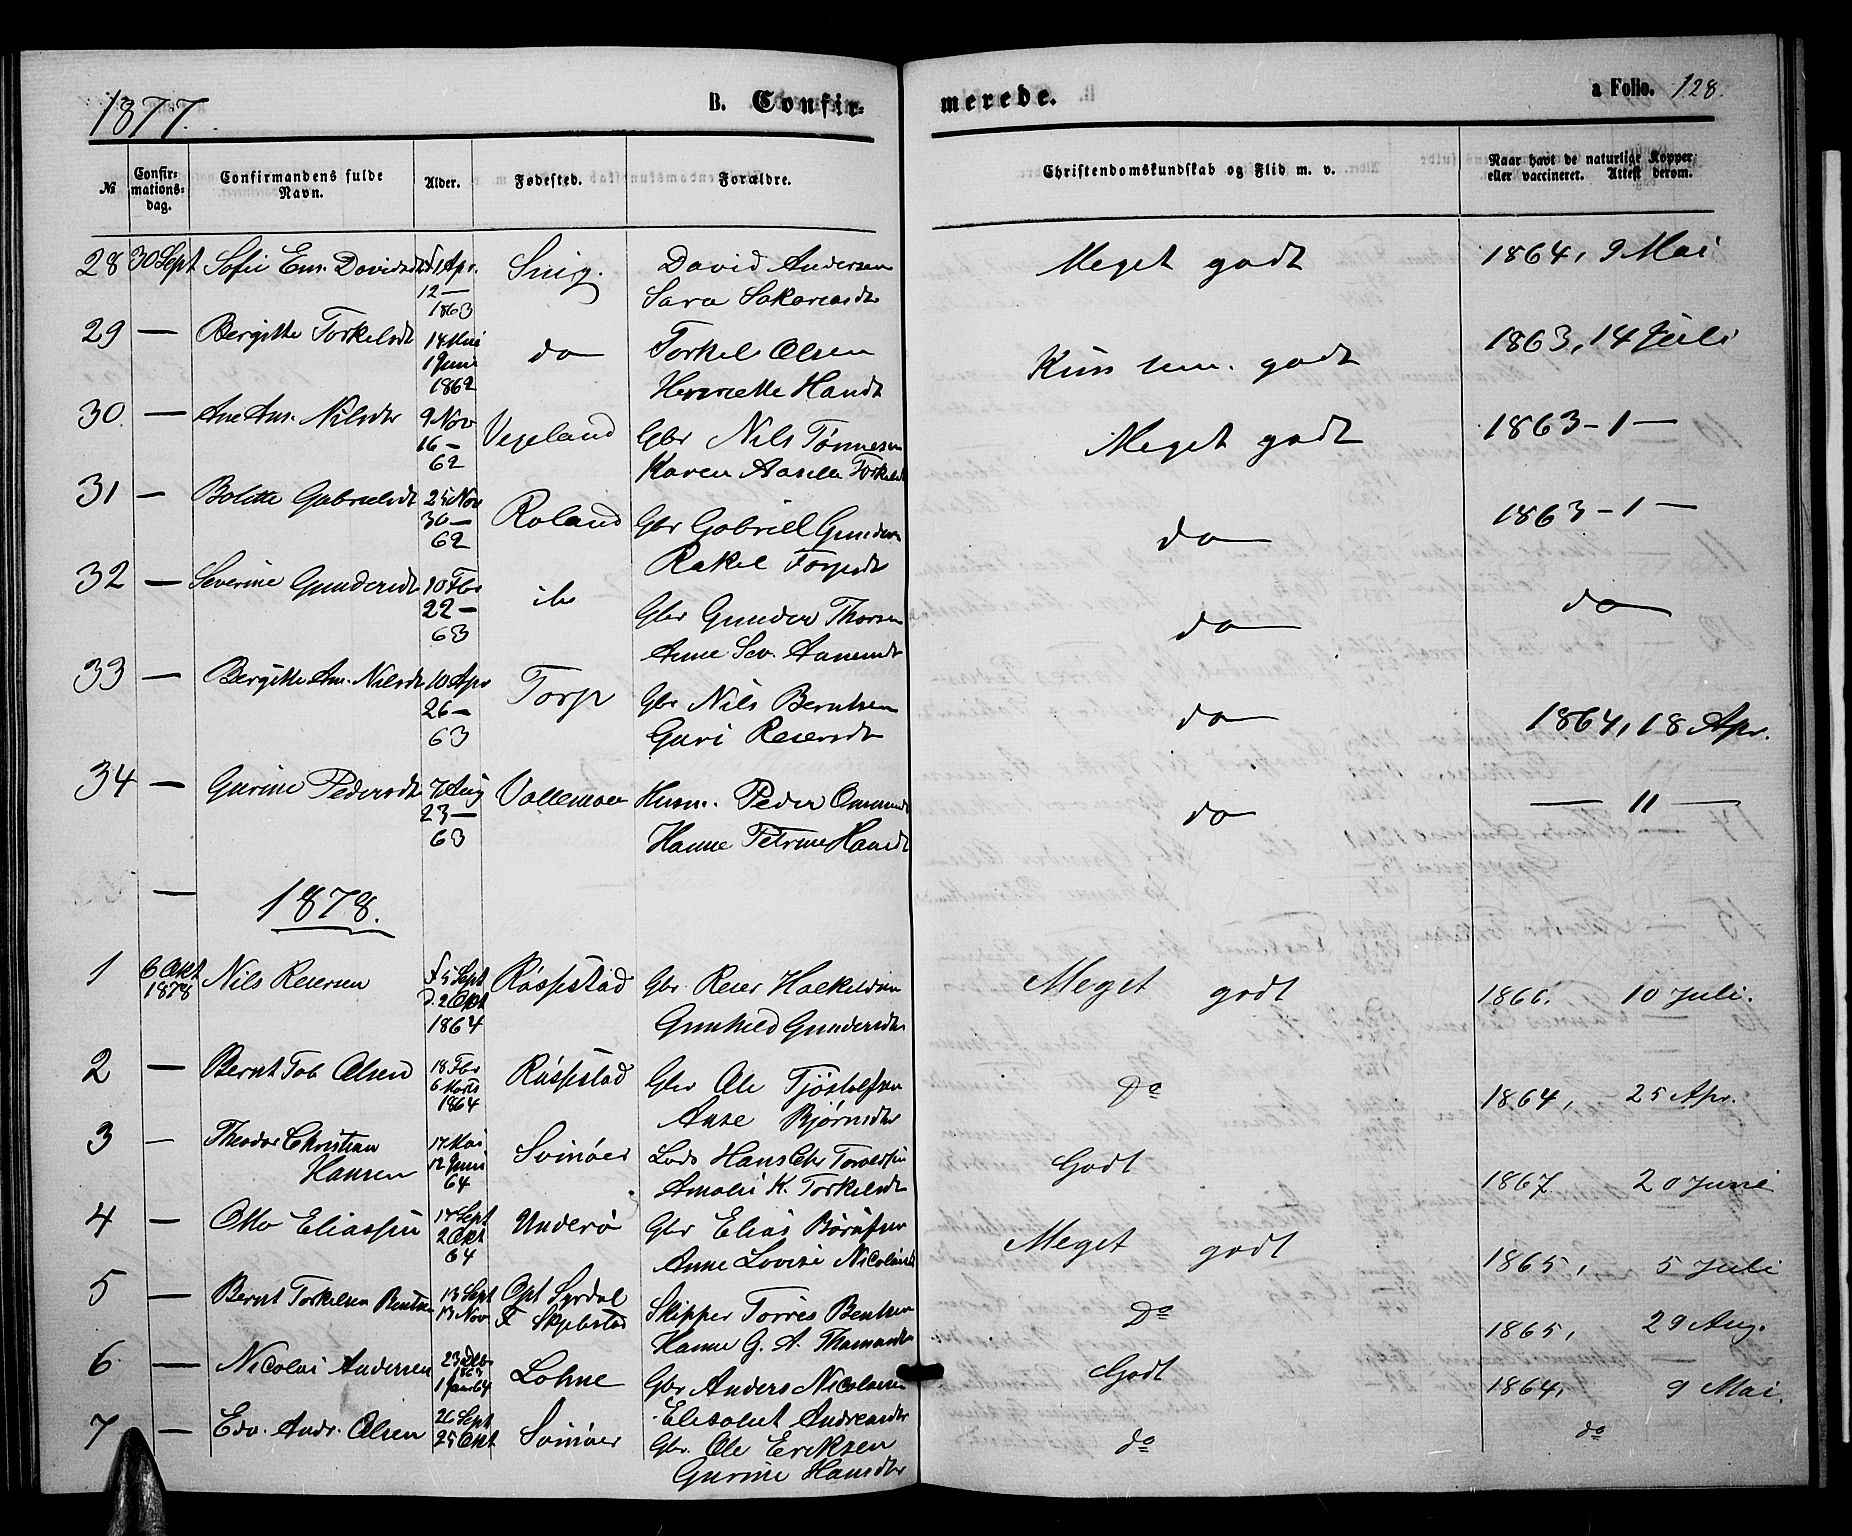 1877. B. Confirmerede. a Folio. 128.
№ Confirmationsdag. Confirmandens fulde Navn. Alder. Fødested. Forældre. Christendomskundskab og Flid m. v. Naar havt de naturlige Kopper eller vaccineret. Attest derom.
28 30 Sept Sofie Em. Davidsdt 1 Apr. David Andersen Meget godt 1864, 9 Mai
12 — 1863 Sara Sakariasdtr
29 — Bergitte Torkelsdt 14 Mai do Torkel Olsen Kun tem. godt 1863, 14 Juli
1 Juni 1862 Henriette Hansdt
30. — Ane Am. Nilsdtr 9 Nov Vegeland Gbr Nils Tønnesen Meget godt 1863 - 1 —
16 — 62 Karen Aaselle Torkelsdt
31 — Bolette Gabrielsdt 25 Nov Roland Gbr Gabriell Gundersen do 1863 - 1 —
30 — 62 Rakel Torpesdt
32 — Severine Gundersdt 10 Fbr ib Gbr Gunder Thorsen do do
22 — 63 Anne Sev. Aanensdt
33 — Bergitte Am. Nilsdt 10 Apr Torp Gbr Nils Berntsen do 1864, 18 Apr.
26 — 63 Guri Reiersdt
34 — Gurine Pedersdt 7 Aug Vollemoen Husm. Peder Omunds do — 11 —
23 — 63 Hanne Petrine Hansdt
—
1878.
1 6 Okt 1878 Nils Reiersen f 5 Sept Røssestad Gbr Reier Hoskildsen Meget godt 1866. 10 Juli.
D. 2 Okt 1864 Gunhild Gundersdtr
2 — Bernt Tob Olsen 18 Fbr Røssestad Gbr Ole Tjøstolfsen Do 1864, 25 Apr.
6 Marts 1864 Anne Bjørnsdtr
3 — Theodor Christian 17 Mai Svinøer Lods Hans Chr Torvaldsen Godt 1867 20 Juni
Hansen 12 Juni 64 Amalie K. Torkelsdt
4 — Otto Eliassen 17 Sept Underø Gbr Elias Børufsen Meget godt 1865, 5 Juli
2 Okt 64 Anne Lovise Nicolaisdt
5 — Bernt Torkelsen Bentsen 13 Sept Opt Syrdal Skipper Torres Bentsen Do 1865, 29 Aug.
13 Nov F Skjebstad Hanne G. A. Thomasdtr
6 — Nicolai Andersen 23 Dcb 1863 Lohne Gbr Anders Nicolaisen Godt 1864, 9 Mai.
1 Jan 64 Elisabet Andreasdtr
7 — Edv. Andr. Olsen 26 Sept Svinøer Gbr. Ole Eriksen do do
25 Okt Gurine Hansdtr